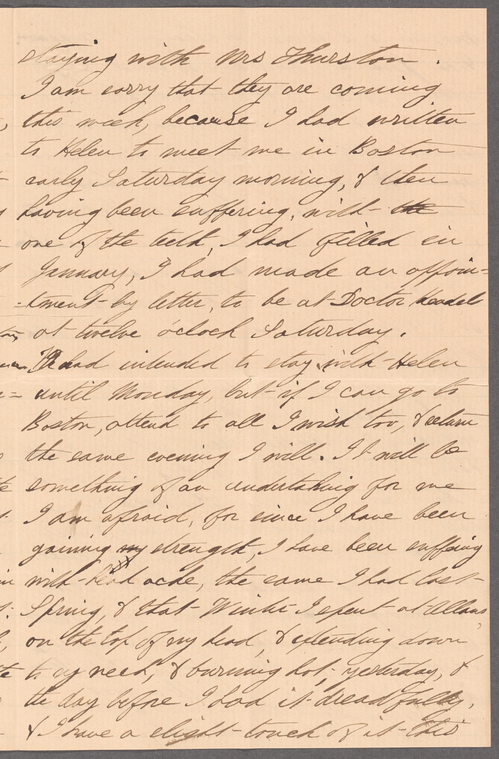 staying with Mrs Thurston.
I am sorry that they are coming
this week, because I had written
to Helen to meet me in Boston
early Saturday morning, & then
having been suffering, with the
one of the teeth, I had filled in
January, I had made an appoin=
=tment by letter, to be at Doctor
at twelve oclock Saturday.
I had intended to stay with Helen
until Monday, but if I can go to
Boston, attend to all I wish too, & return
the same evening I will. It will be
something of an undertaking for me
I am afraid, for since I have been
gaining my strength, I have been suffering
with head ache, the same I had last
Spring, & that Winter I spent at
on the top of my head, & extending down
to my neck, & burning hot, yesterday, &
the day before I had it dreadfully,
& I have a slight touch of it this